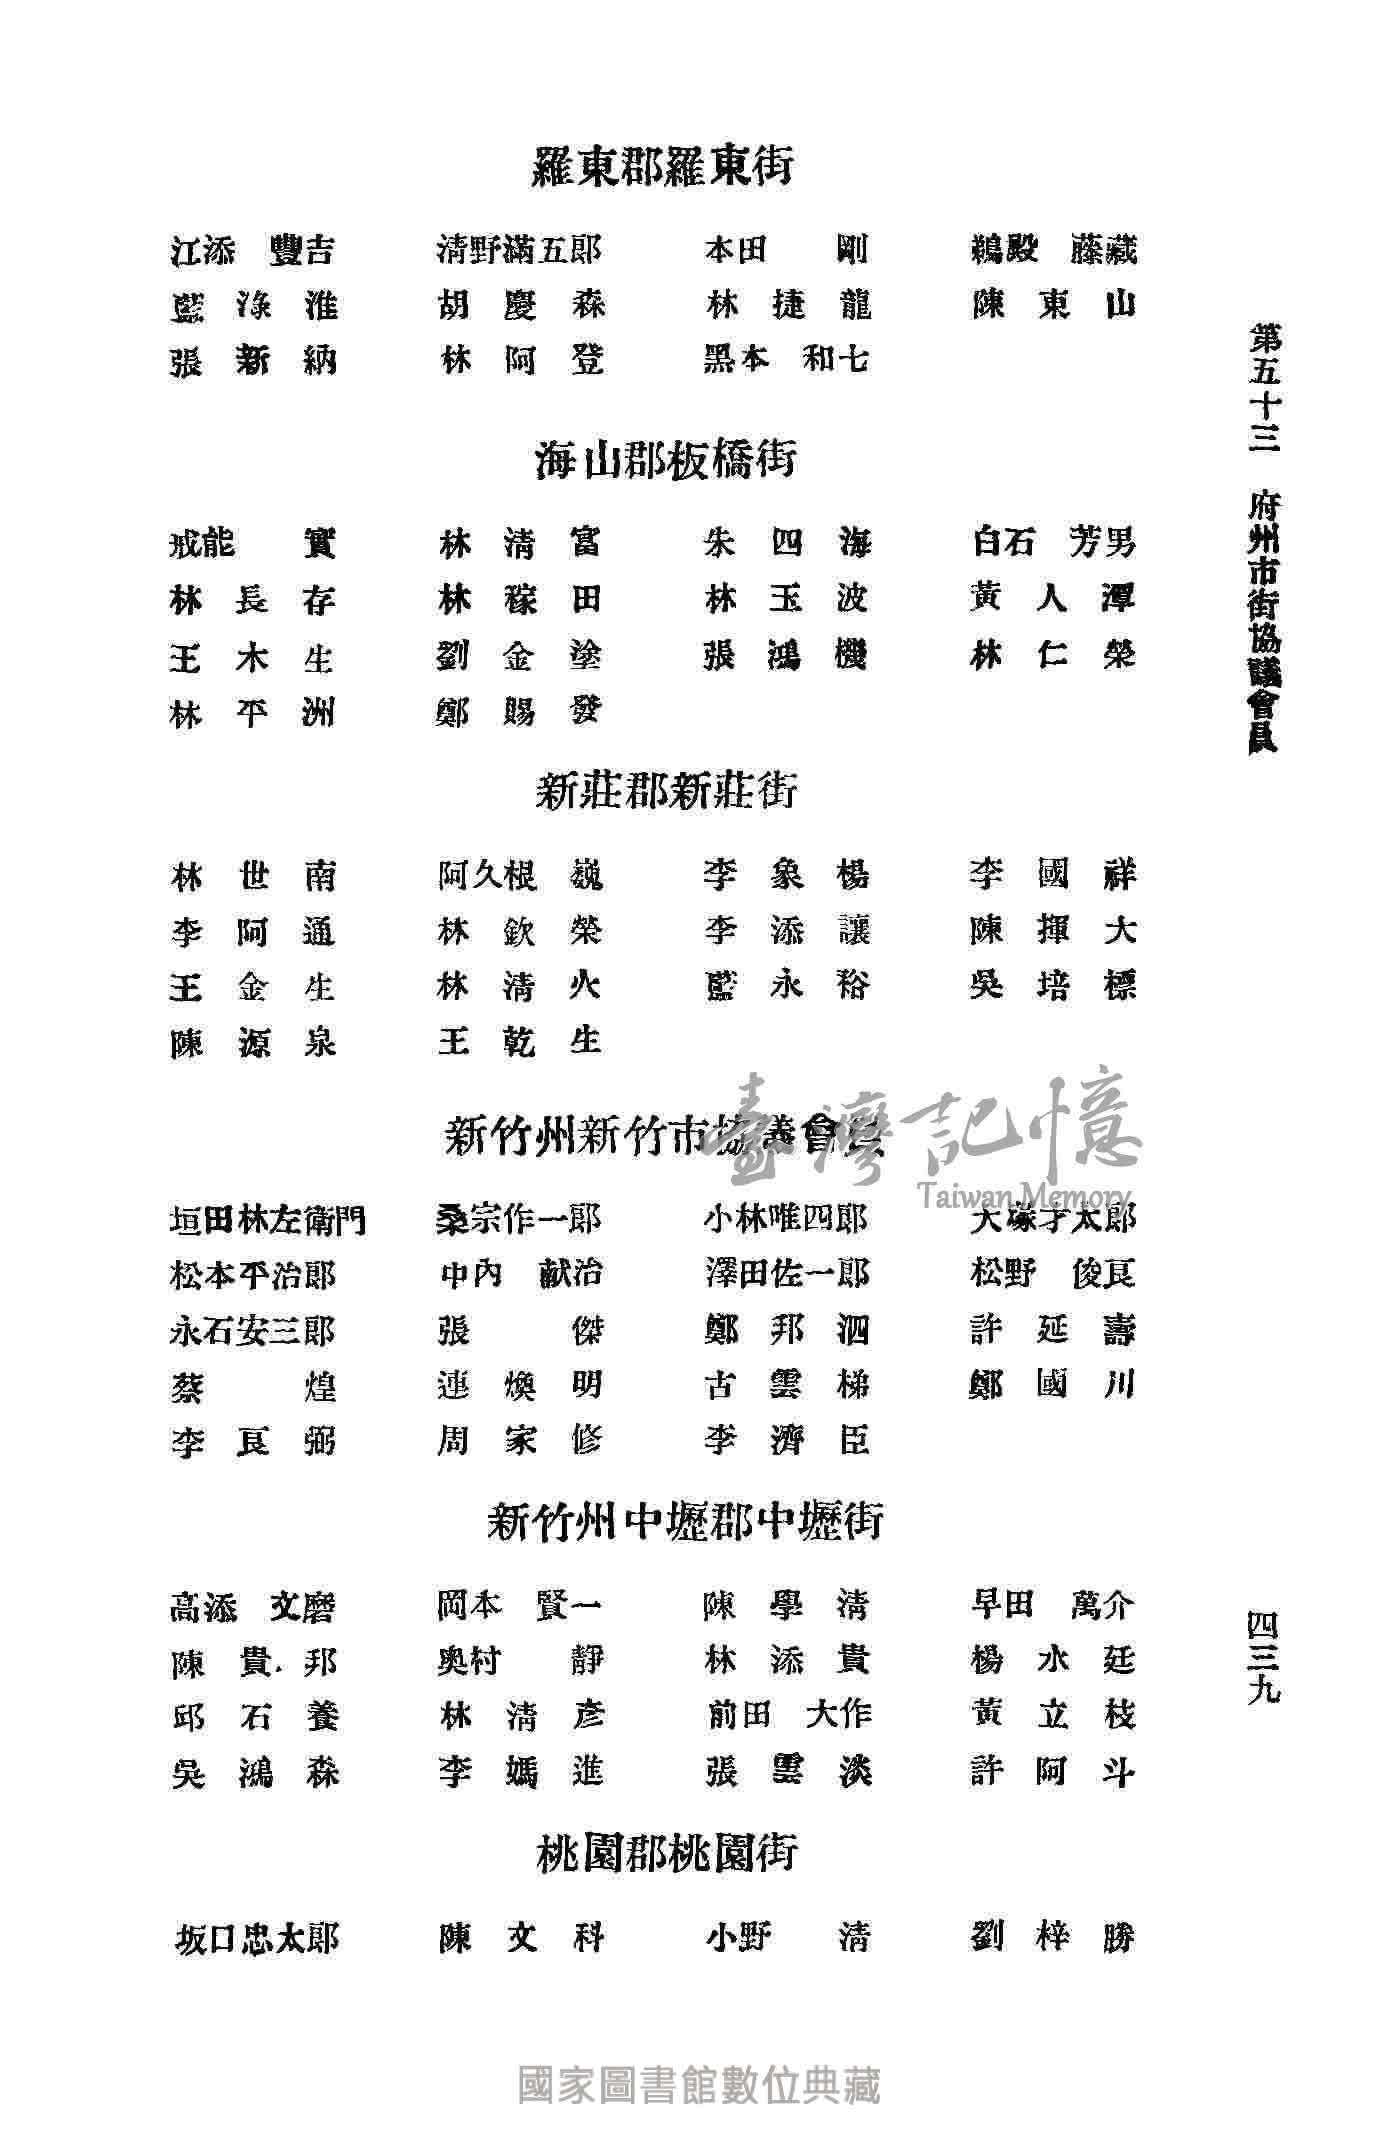 羅東郡羅東街
江添 豐吉 清野滿五郎 本田 剛 鵜殿 藤藏
藍淥淮 胡慶森 林捷龍 陳東山
張新納 林阿登 黑本 和七
海山郡板橋街
戒能 實 林清富 朱四海 白石 芳男
林長存 林稼田 林玉波 黃人潭
王木生 劉金塗 張鴻機 林仁榮
林平洲 鄭賜發
新莊郡新莊街
林世南 阿久根 巍 李象楊 李國祥
李阿通 林欽榮 李添讓 陳揮大
王金生 林清火 藍永裕 吳培標
陳源泉 王乾生
新竹州新竹市協議會員
垣田林左衛門 桑宗作一郎 小林唯四郎 大塚才太郎
松本平治郎 中內 献治 澤田佐一郎 松野 俊良
永石安三郎 張 傑 鄭邦泗 許延壽
蔡 煌 連煥明 古雲梯 鄭國川
李良弼 周家修 李濟臣
新竹州中壢郡中壢街
高添 文磨 岡本 賢一 陳學清 早田 萬介
陳貴邦 奧村 靜 林添貴 楊水廷
邱石養 林清彥 前田 大作 黃立枝
吳鴻森 李媽進 張雲淡 許阿斗
桃園郡桃園街
坂口忠太郎 陳文科 小野 清 劉梓勝
第五十三 府州市街協議會員
四三九
臺灣記憶
Taiwan Memory
國家圖書館數位典藏